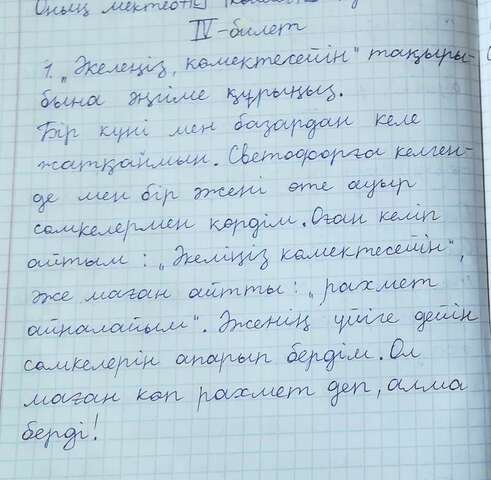 Оның мектебі
IV-билет
1. „Әкелеңіз, көмектесейін" тақыры-
бына әңгіме құрыңыз.
Бір күні мен базардан келе
жатқаймын. Светофорға келген-
де мен бір әжені өте ауыр
сөмкелермен көрдім. Оған келіп
айтым: „Әкеліңіз көмектесейін",
әже маған айтты: „рахмет
айналайым". Әженің үйіге дейін
сөмкелерін апарып бердім. Ол
маған көп рахмет деп, алма
берді!